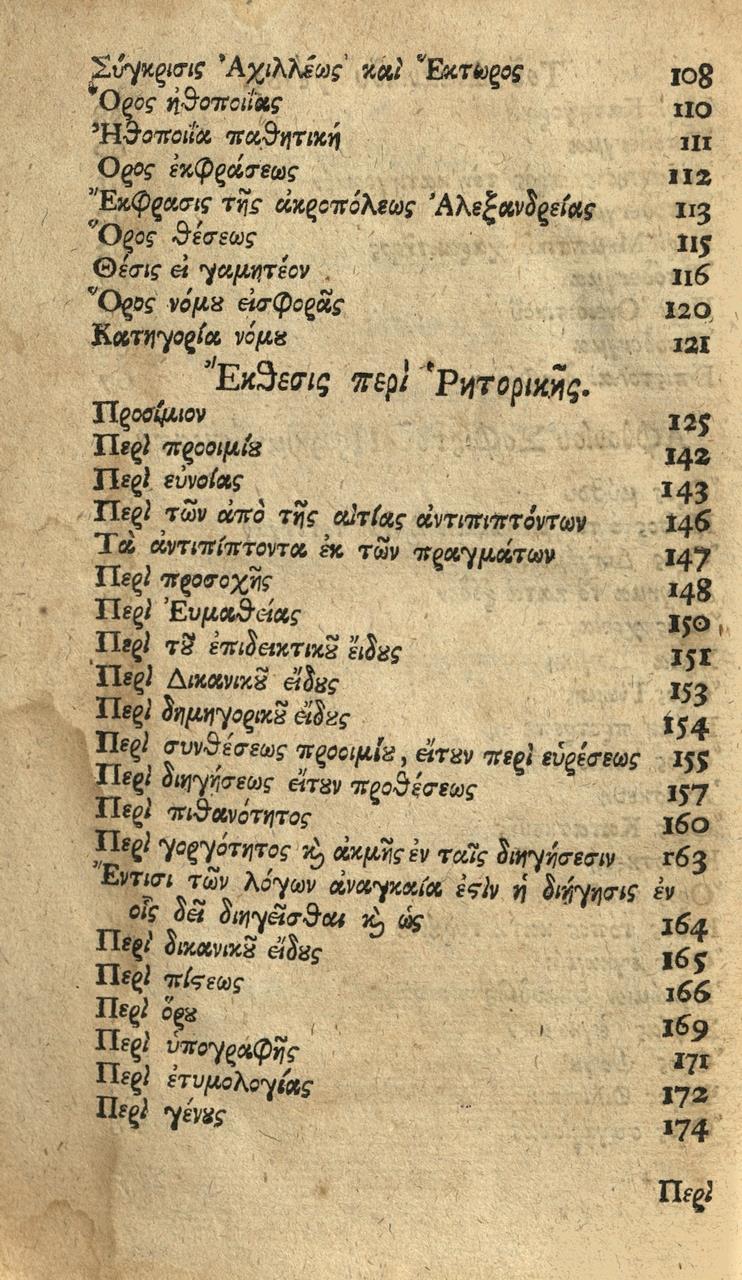 Σύγκρισις Ἀχιλλέως καὶ Ἕκτωρος 108
Ὅρος ἠθοποιΐας 110
Ἠθοποιΐα παθητική 111
Ὅρος ἐκφράσεως 112
Ἔκφρασις τῆς ἀκροπόλεως Ἀλεξανδρείας 113
Ὅρος θέσεως 115
Θέσις εἰ γαμητέον 116
Ὅρος νόμȣ εἰσφορᾶς 120
Κατηγορία νόμȣ 121
Ἔκθεσις περὶ Ῥητορικῆς.
Προοίμιον 125
Περὶ προοιμίȣ 142
Περὶ εὐνοίας 143
Περὶ τῶν ἀπὸ τῆς αἰτίας ἀντιπιπτόντων 146
Τὰ ἀντιπίπτοντα ἐκ τῶν πραγμάτων 147
Περὶ προσοχῆς 148
Περὶ Ἐυμαθείας 150
Περὶ τȣ͂ ἐπιδεικτικȣ͂ εἴδȣς 151
Περὶ Δικανικȣ͂ εἴδȣς 153
Περὶ δημηγορικȣ͂ εἴδȣς 154
Περὶ συνθέσεως προοιμίȣ, εἴτȣν περὶ εὑρέσεως 155
Περὶ διηγήσεως εἴτȣν προθέσεως 157
Περὶ πιθανότητος 160
Περὶ γοργότητος ϗ ἀκμῆς ἐν ταῖς διηγήσεσιν 163
Ἔντισι τῶν λόγων ἀναγκαία ἐϛὶν ἡ διήγησις ἐν
οἷς δεῖ διηγεῖσθαι ϗ ὡς 164
Περὶ δικανικȣ͂ εἴδȣς 165
Περὶ πίϛεως 166
Περὶ ὅρȣ 169
Περὶ ὑπογραφῆς 171
Περὶ ἐτυμολογίας 172
Περὶ γένȣς 174
Περὶ